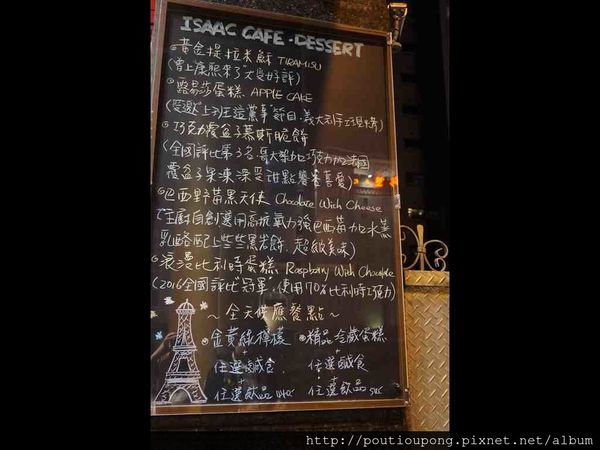 ISAAC CAFE - DESSERT
黃金提拉米酥 TIRAMISU
(曾上康熙來了"大受好評)
露易莎蛋糕 APPLE CAKE
(受邀"上班這黨事"節目,義大利手工現烤)
巧克力覆盆子慕斯脆餅
(全國評比第3名,哥大黎加巧克力加法國
覆盆子果凍深受甜點饕客喜愛)
巴西野莓黑天使 Chocolate With Cheese
(主廚自創選用高抗氧力強巴西莓加水蒸
乳酪配上些些黑岩餅,超級美味)
浪漫比利時蛋糕 Raspberry With Chocolate
(2016全國評比"冠軍",使用70%比利時巧克力)
~全天供應餐點~
金黃綠檸檬 精品珍藏蛋糕
+ +
任選鹹食 任選鹹食
+ +
任選飲品 任選飲品
http://poutioupong.pixnet.net/album